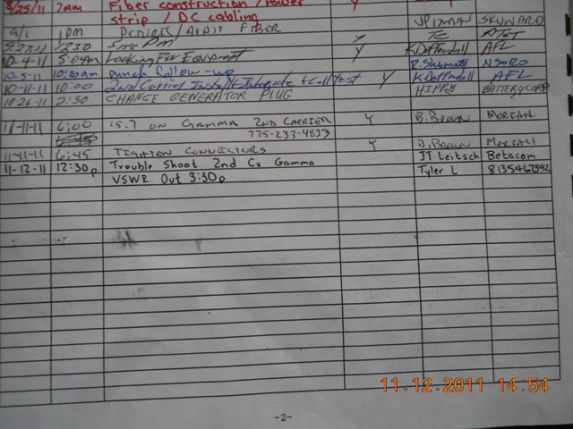 8/25/11 7am Fiber construction / Power Y
strip / DC cabling
9/1 1pm Pictures / Audit Fiber TC
9-27-11 7:30 Site PM Y
10-4-11 5:00am Looking For Equipment Y K. Daffendall AFL
10-5-11 10:00am Punch follow-up R. Shumate NSORO
10-11-11 10:00 2nd Carrier Install + Integrate + Call test Y K Daffendall AFL
10-26-11 2:30 CHANGE GENERATOR PLUG HIPPY BATTERYCORP
11-11-11 6:00 15.7 ON GAMMA 2ND CARRIER Y B. Brown
775-233-4833
11-11-11 6:45 TIGHTEN CONNECTORS Y D. Brown
11-12-11 12:30p Trouble Shoot 2nd Cx Gamma JT Leitsch Betacom
VSWR Out 3:30p Tyler L 8135467392
11.12.2011 14:54
-2-